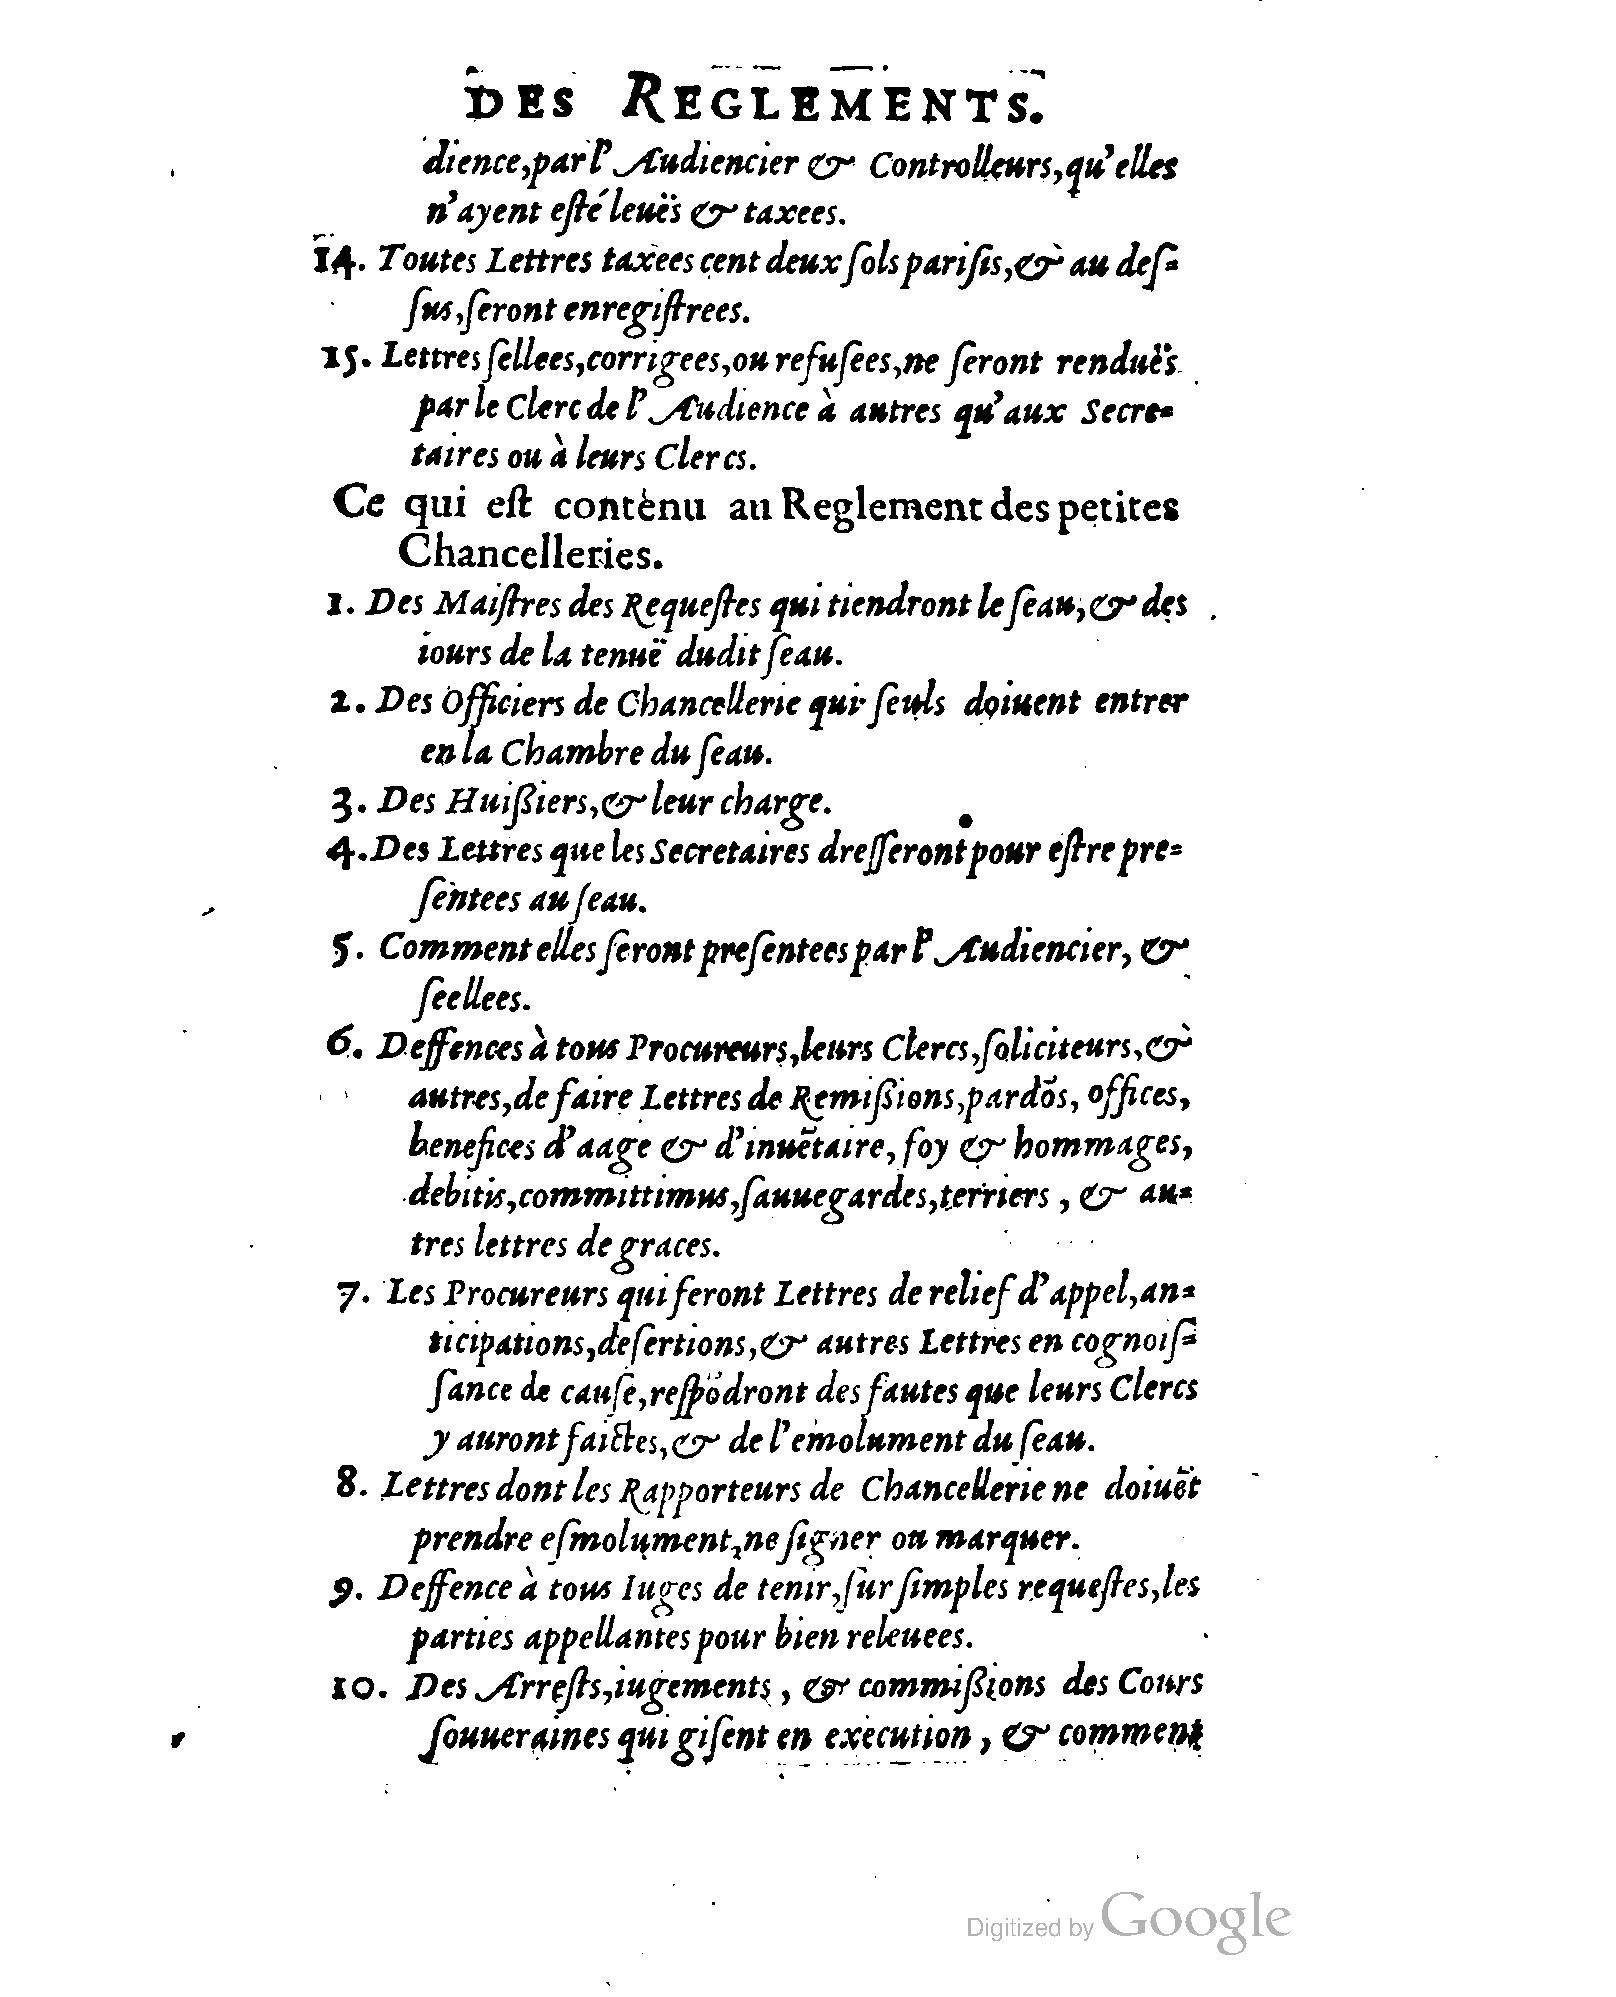 DES REGLEMENTS.
dience,par l'Audiencier & Controlleurs,qu'elles
n'ayent eſté leuës & taxees.
14. Toutes Lettres taxees cent deux ſols pariſis,& au deſ-
ſus,ſeront enregiſtrees.
15. Lettres ſellees,corrigees,ou refuſees,ne ſeront renduës
par le Clerc de l'Audience à autres qu'aux Secre-
taires ou à leurs Clercs.
Ce qui eſt contenu au Reglement des petites
Chancelleries.
1. Des Maiſtres des Requeſtes qui tiendront le ſeau,& des
iours de la tenuë dudit ſeau.
2. Des Officiers de Chancellerie qui ſeuls doiuent entrer
en la Chambre du ſeau.
3. Des Huiſſiers,& leur charge.
4. Des Lettres que les Secretaires dreſſeront pour eſtre pre-
ſentees au ſeau.
5. Comment elles ſeront preſentees par l'Audiencier, &
ſeellees.
6. Deffences à tous Procureurs,leurs Clercs,ſoliciteurs,&
autres,de faire Lettres de Remiſſions,pardõs, offices,
benefices d'aage & d'inuẽtaire, foy & hommages,
debitis,committimus,ſauuegardes,terriers , & au-
tres lettres de graces.
7. Les Procureurs qui feront Lettres de relief d'appel,an-
ticipations,deſertions,& autres Lettres en cognoiſ-
ſance de cauſe,reſpõdront des fautes que leurs Clercs
y auront faictes,& de l'emolument du ſeau.
8. Lettres dont les Rapporteurs de Chancellerie ne doiuẽt
prendre eſmolument,ne ſigner ou marquer.
9. Deffence à tous Iuges de tenir,ſur ſimples requeſtes,les
parties appellantes pour bien releuees.
10. Des Arreſts,iugements , & commiſſions des Cours
ſouueraines qui giſent en execution , & comment
Digitized by Google